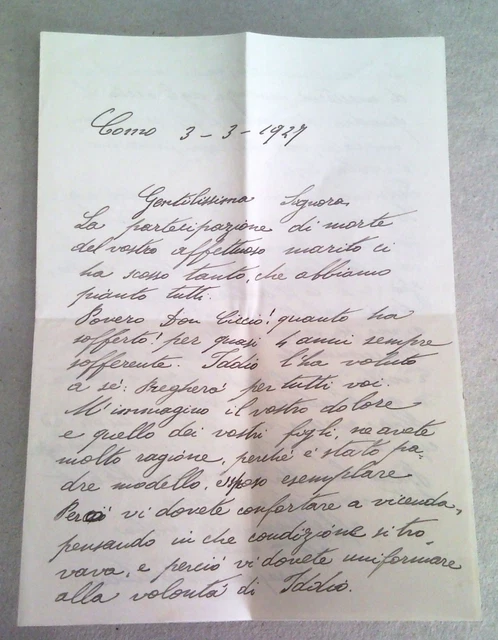 Como 3-3-1927
Gentilissima Signora,
La partecipazione di morte
del vostro affettuoso marito ci
ha scosso tanto, che abbiamo
pianto tutti.
Povero Don Ciccio! quanto ha
sofferto! per quasi 4 anni sempre
sofferente. Iddio l'ha voluto
a sé: Pregherà per tutti voi.
M'immagino il vostro dolore
e quello dei vostri figli, ne avete
molto ragione, perché è stato pa-
dre modello, sposo esemplare
Però vi dovete confortare a vicenda,
pensando in che condizione si tro-
vava, e perciò vi dovete uniformare
alla volontà di Iddio.